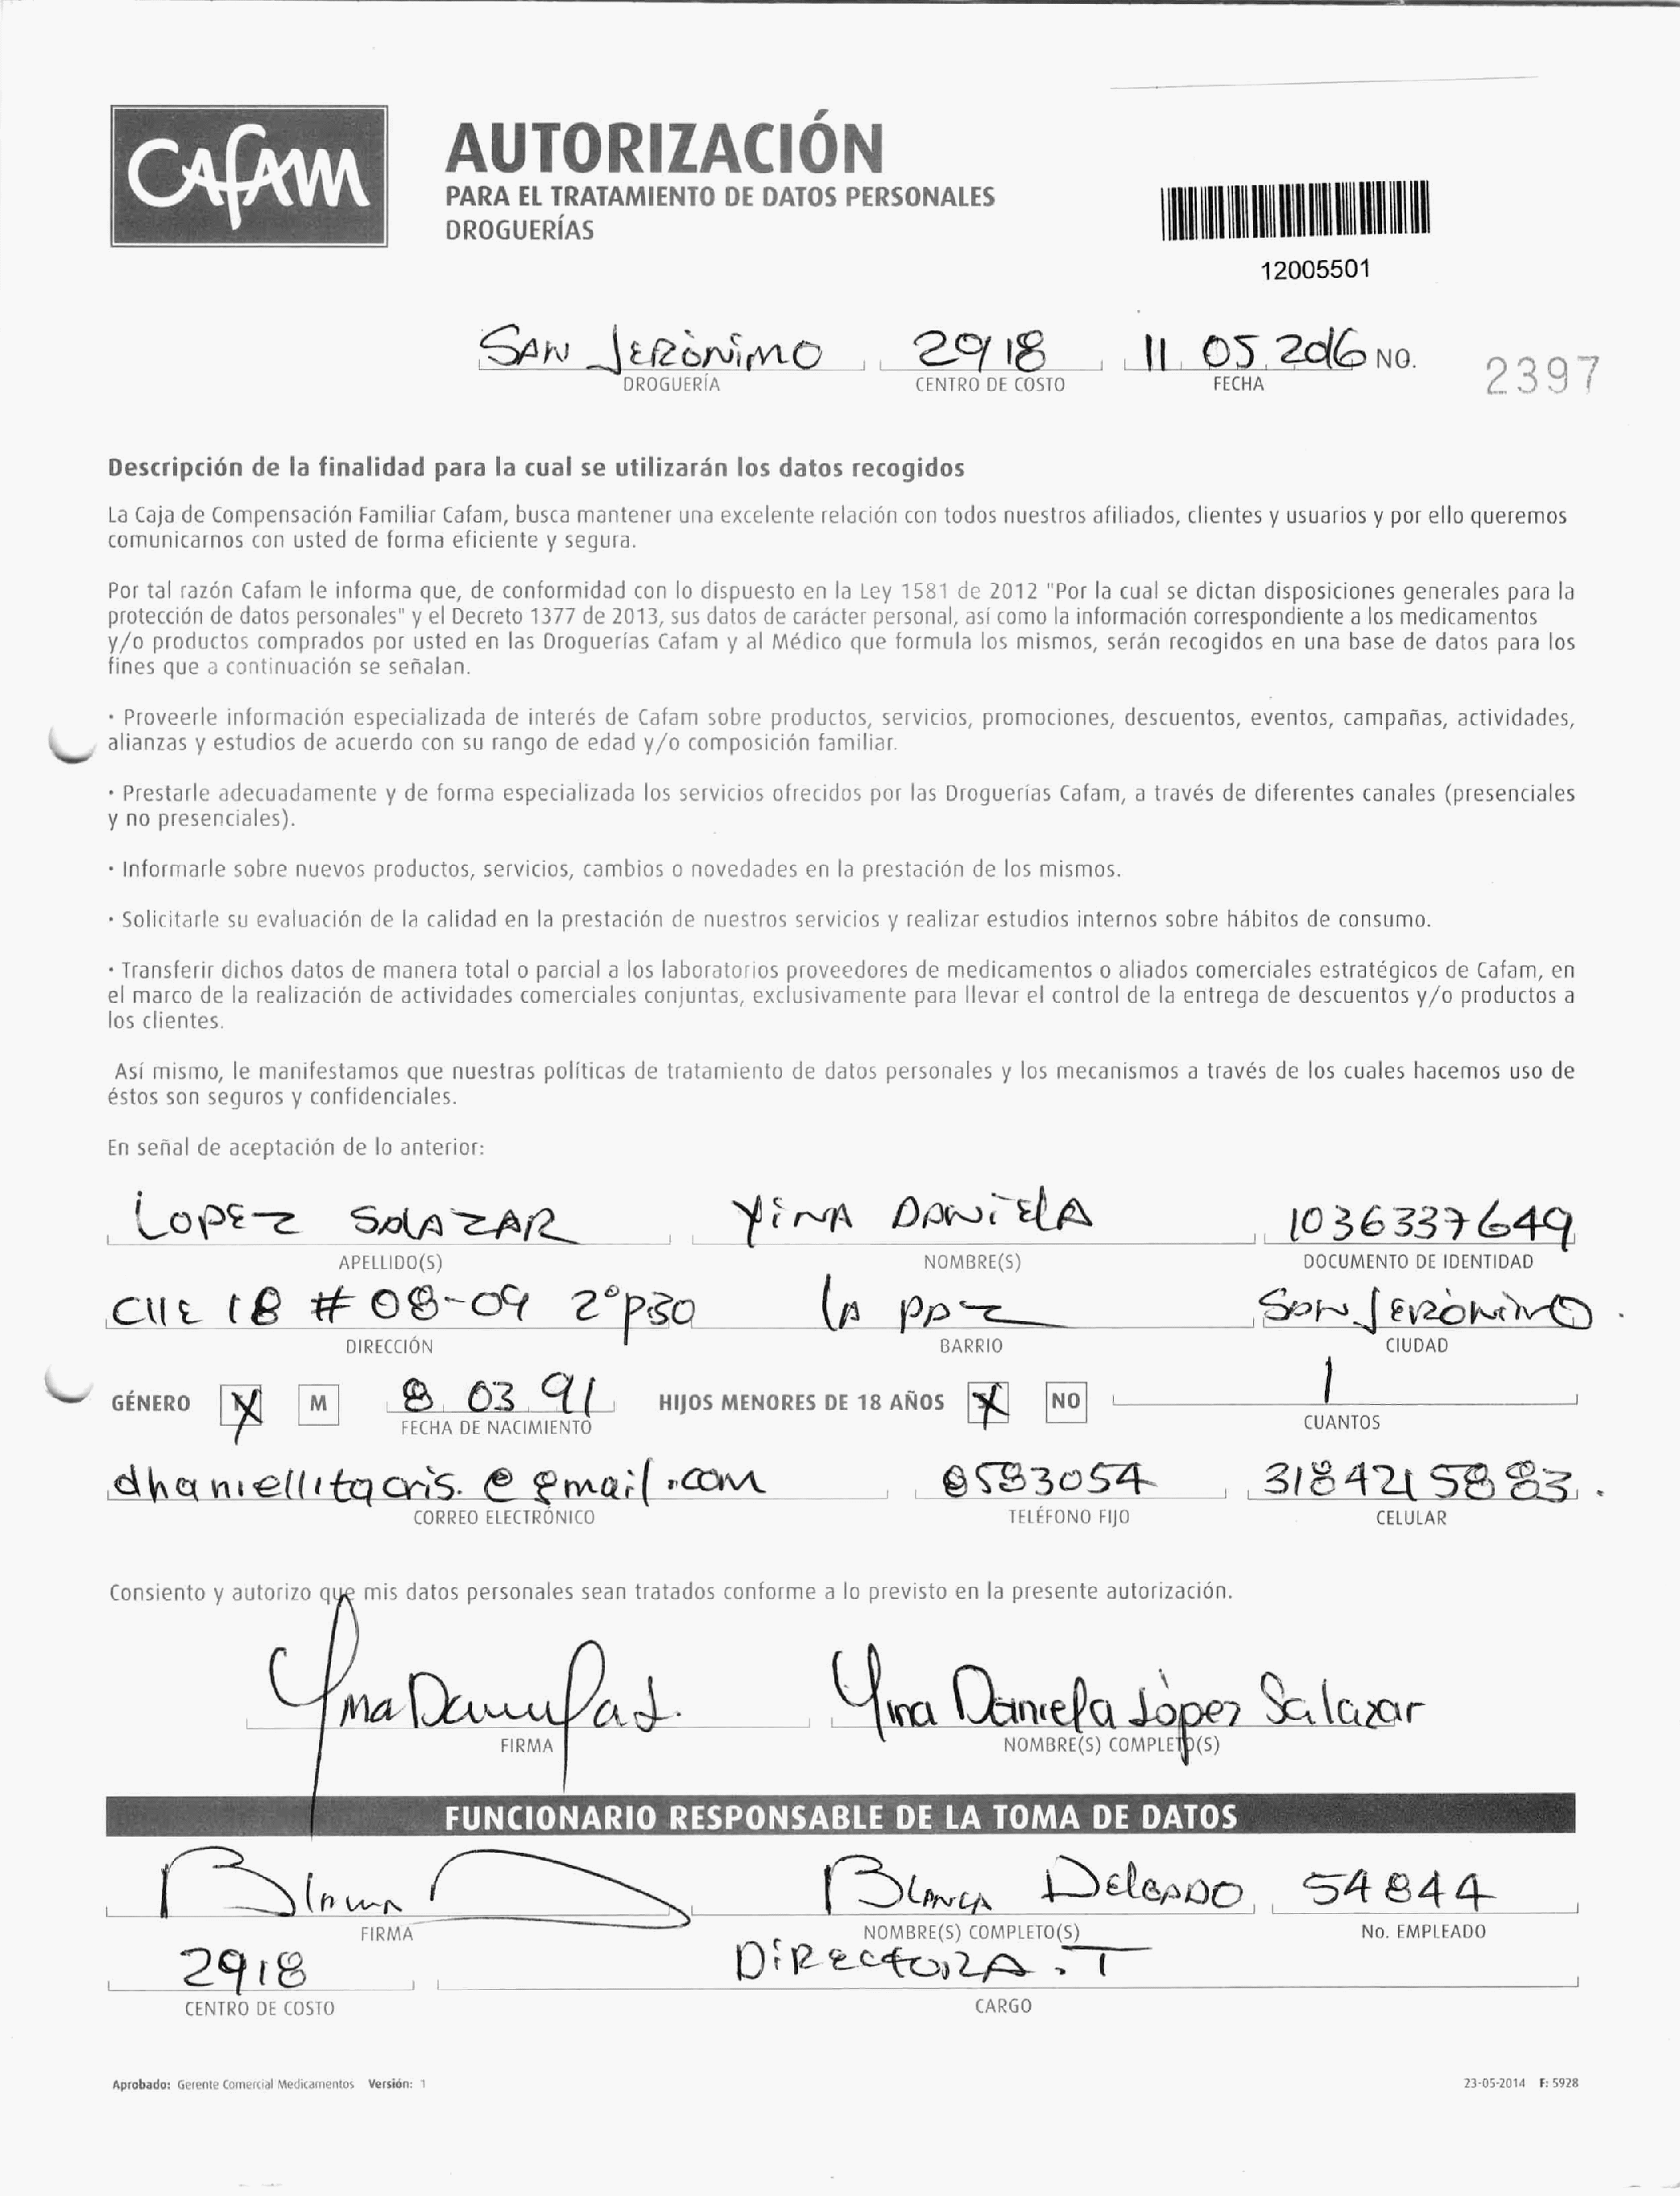 CAFAM
AUTORIZACIÓN
PARA EL TRATAMIENTO DE DATOS PERSONALES
DROGUERÍAS
12005501
SAN JERÒNIMO 2918 11 05 2016 NO. 2397
DROGUERÍA CENTRO DE COSTO FECHA
Descripción de la finalidad para la cual se utilizarán los datos recogidos
La Caja de Compensación Familiar Cafam, busca mantener una excelente relación con todos nuestros afiliados, clientes y usuarios y por ello queremos
comunicarnos con usted de forma eficiente y segura.
Por tal razón Cafam le informa que, de conformidad con lo dispuesto en la Ley 1581 de 2012 "Por la cual se dictan disposiciones generales para la
protección de datos personales" y el Decreto 1377 de 2013, sus datos de carácter personal, así como la información correspondiente a los medicamentos
y/o productos comprados por usted en las Droguerías Cafam y al Médico que formula los mismos, serán recogidos en una base de datos para los
fines que a continuación se señalan.
· Proveerle información especializada de interés de Cafam sobre productos, servicios, promociones, descuentos, eventos, campañas, actividades,
alianzas y estudios de acuerdo con su rango de edad y/o composición familiar.
· Prestarle adecuadamente y de forma especializada los servicios ofrecidos por las Droguerías Cafam, a través de diferentes canales (presenciales
y no presenciales).
· Informarle sobre nuevos productos, servicios, cambios o novedades en la prestación de los mismos.
· Solicitarle su evaluación de la calidad en la prestación de nuestros servicios y realizar estudios internos sobre hábitos de consumo.
· Transferir dichos datos de manera total o parcial a los laboratorios proveedores de medicamentos o aliados comerciales estratégicos de Cafam, en
el marco de la realización de actividades comerciales conjuntas, exclusivamente para llevar el control de la entrega de descuentos y/o productos a
los clientes.
Así mismo, le manifestamos que nuestras políticas de tratamiento de datos personales y los mecanismos a través de los cuales hacemos uso de
éstos son seguros y confidenciales.
En señal de aceptación de lo anterior:
LOPEZ SALAZAR YINA DANIELA 1036337649
APELLIDO(S) NOMBRE(S) DOCUMENTO DE IDENTIDAD
Clle 18 # 08-09 2° piso LA PAZ SAN JERÒNIMO.
DIRECCIÓN BARRIO CIUDAD
GÉNERO X M 8 03 91 HIJOS MENORES DE 18 AÑOS X NO 1
FECHA DE NACIMIENTO CUANTOS
dhaniellitacris.@gmail.com 8583054 3184215883.
CORREO ELECTRÓNICO TELÉFONO FIJO CELULAR
Consiento y autorizo que mis datos personales sean tratados conforme a lo previsto en la presente autorización.
Yina Daniela Lòpez Salazar
FIRMA NOMBRE(S) COMPLETO(S)
FUNCIONARIO RESPONSABLE DE LA TOMA DE DATOS
Blanca BLANCA DELGADO 54844
FIRMA NOMBRE(S) COMPLETO(S) No. EMPLEADO
2918 DIRECTORA.T
CENTRO DE COSTO CARGO
Aprobado: Gerente Comercial Medicamentos Versión: 1 23-05-2014 F: 5928